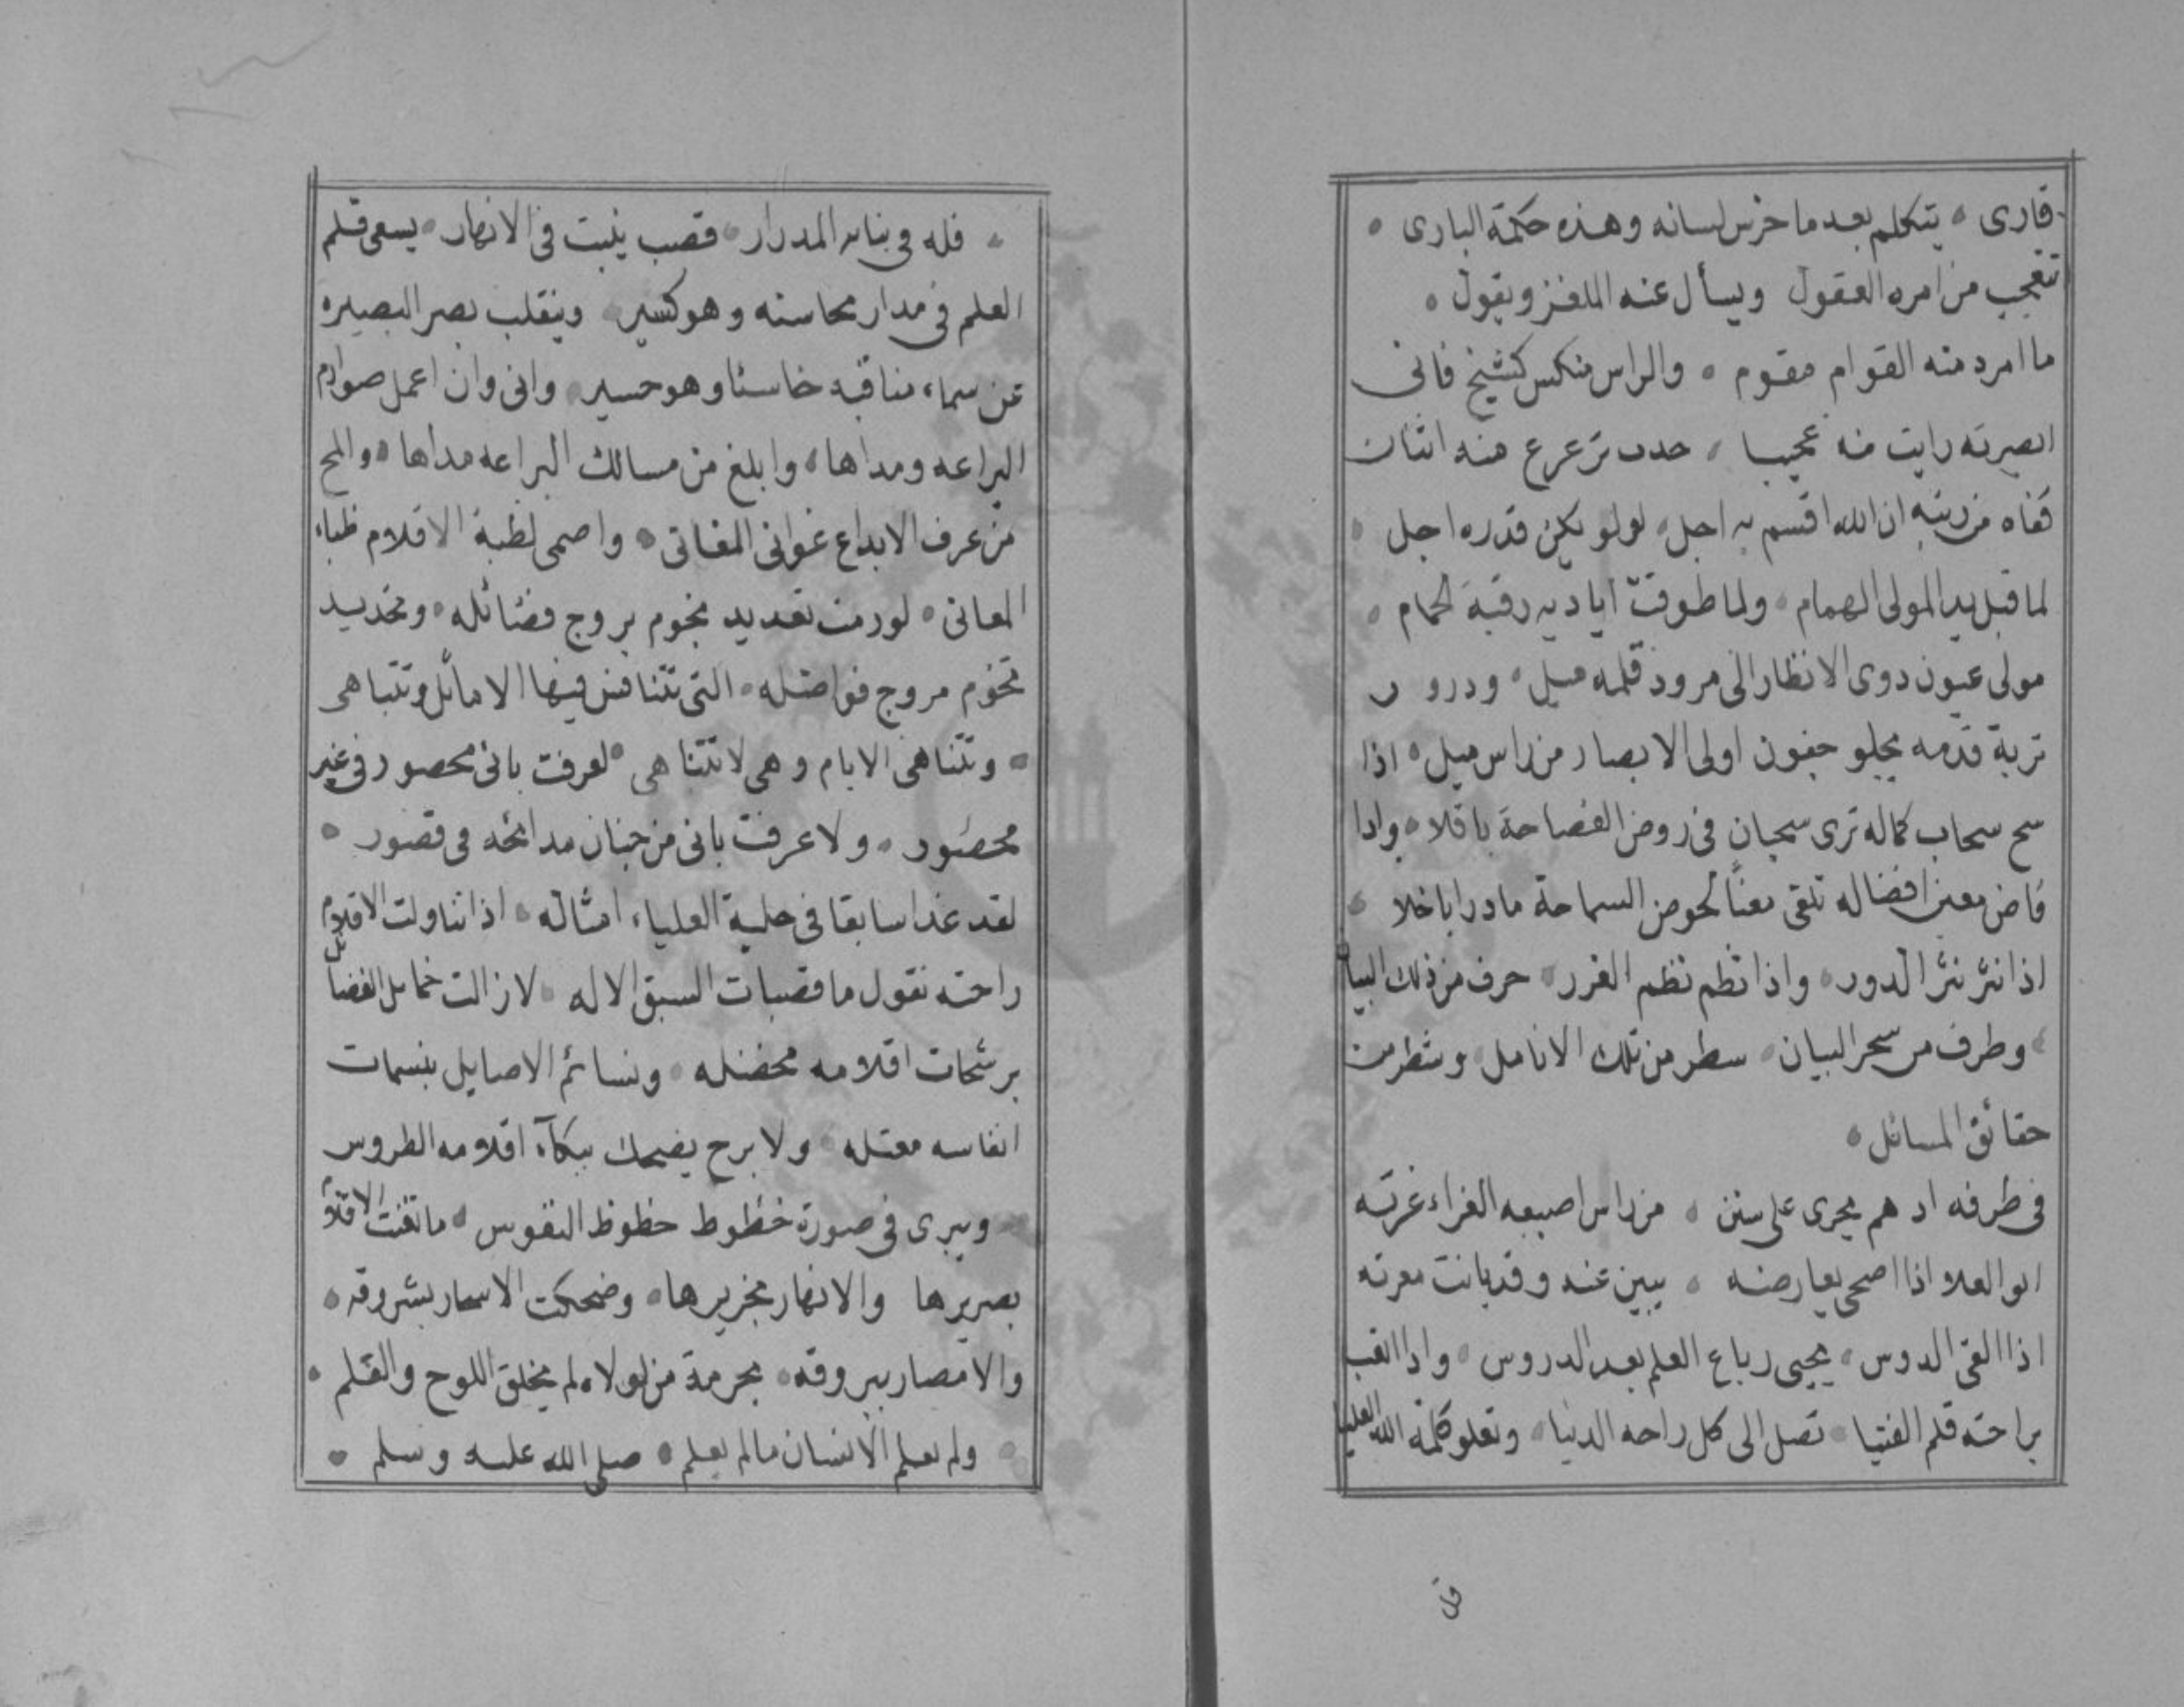 قارى ٠ يتكلم بعد ما خرس لسانه وهذه حكمة البارى ٠
تتعجب من امره العقول ويسأل عنه الملغز ويقول ٠
ما امرد منه القوام مقوم ٠ والراس منكس كشيخ فانى
ابصرته رايت منه عجيبا ٠ حدب ترعرع منه اثنان
كفاه من رتبه ان الله اقسم به اجل ٠ لولو يكن قدره اجل
لما قبل يد المولى الهمام ٠ ولما طوقت اياديه رقبة الحمام ٠
مولى عيون ذوى الانظار الى مرود قلمه ميل ٠ وذرور
تربة قدمه يجلو جفون اولى الابصار من راس ميل ٠ اذا
سح سحاب كماله ترى سحبان فى روض الفصاحة باقلا ٠ واذا
فاض معين افضاله تلقى معنًا لحوض السماحة مادرا باخلا ٠
اذا نثر نثر الدرر ٠ واذا نظم نظم الغرر ٠ حرف من ذلك البيان
وطرف من سحر البيان ٠ سطر من تلك الانامل وشطر من
حقائق المسائل ٠
فى طرفه ادهم يجرى على سنن ٠ من راس اصبعه الغراء غرته
ابو العلاء اذا اضحى يعارضه ٠ يبين عنه وقد بانت معرته
اذا القى الدروس ٠ يحيى رباع العلم بعد الدروس ٠ واذا
براحته قلم الفتيا ٠ تصل الى كل راحه الدنيا ٠ وتعلو كلمة الله العليا
فله
٠ فله فى بنانه المدرار ٠ قصب ينبت فى الانهار ٠ يسعى قلم
العلم فى مدار محاسنه وهو كسير ٠ وينقلب بصر البصيره
عن سماء مناقبه خاسئا وهو حسير ٠ وانى وان اعمل صوارم
اليراعه ومداها ٠ وابلغ من مسالك البراعه مداها ٠ والمح
من غرف الابداع غوانى المغانى ٠ واصمى بظبة الاقلام ظباء
المعانى ٠ لو رمت تعديد نجوم بروج فضائله ٠ وتحديد
تخوم مروج فواضله ٠ التى تتنافس فيها الاماثل وتتباهى
٠ وتتناهى الايام وهى لا تتناهى ٠ لعرفت بانى محصور فى غير
محصور ٠ ولا عرفت بانى من جنان مدائحه فى قصور ٠
لقد غدا سابقا فى حلبة العلياء امثاله ٠ اذا تناولت الاقلام
راحته تقول ما قصبات السبق الا له ٠ لا زالت خمايل الفضائل
برشحات اقلامه مخضله ٠ ونسائم الاصايل بنسمات
انفاسه معتله ٠ ولا برح يضحك ببكآء اقلامه الطروس
٠ ويبرى فى صورة خطوط حظوظ النفوس ٠ ما تغنت الاقلام
بصريرها والانهار بخريرها ٠ وضحكت الاسحار بشروقه ٠
والامصار ببروقه ٠ بحرمة من لولاه لم يخلق اللوح والقلم ٠
٠ ولم يعلم الانسان ما لم يعلم ٠ صلى الله عليه وسلم ٠